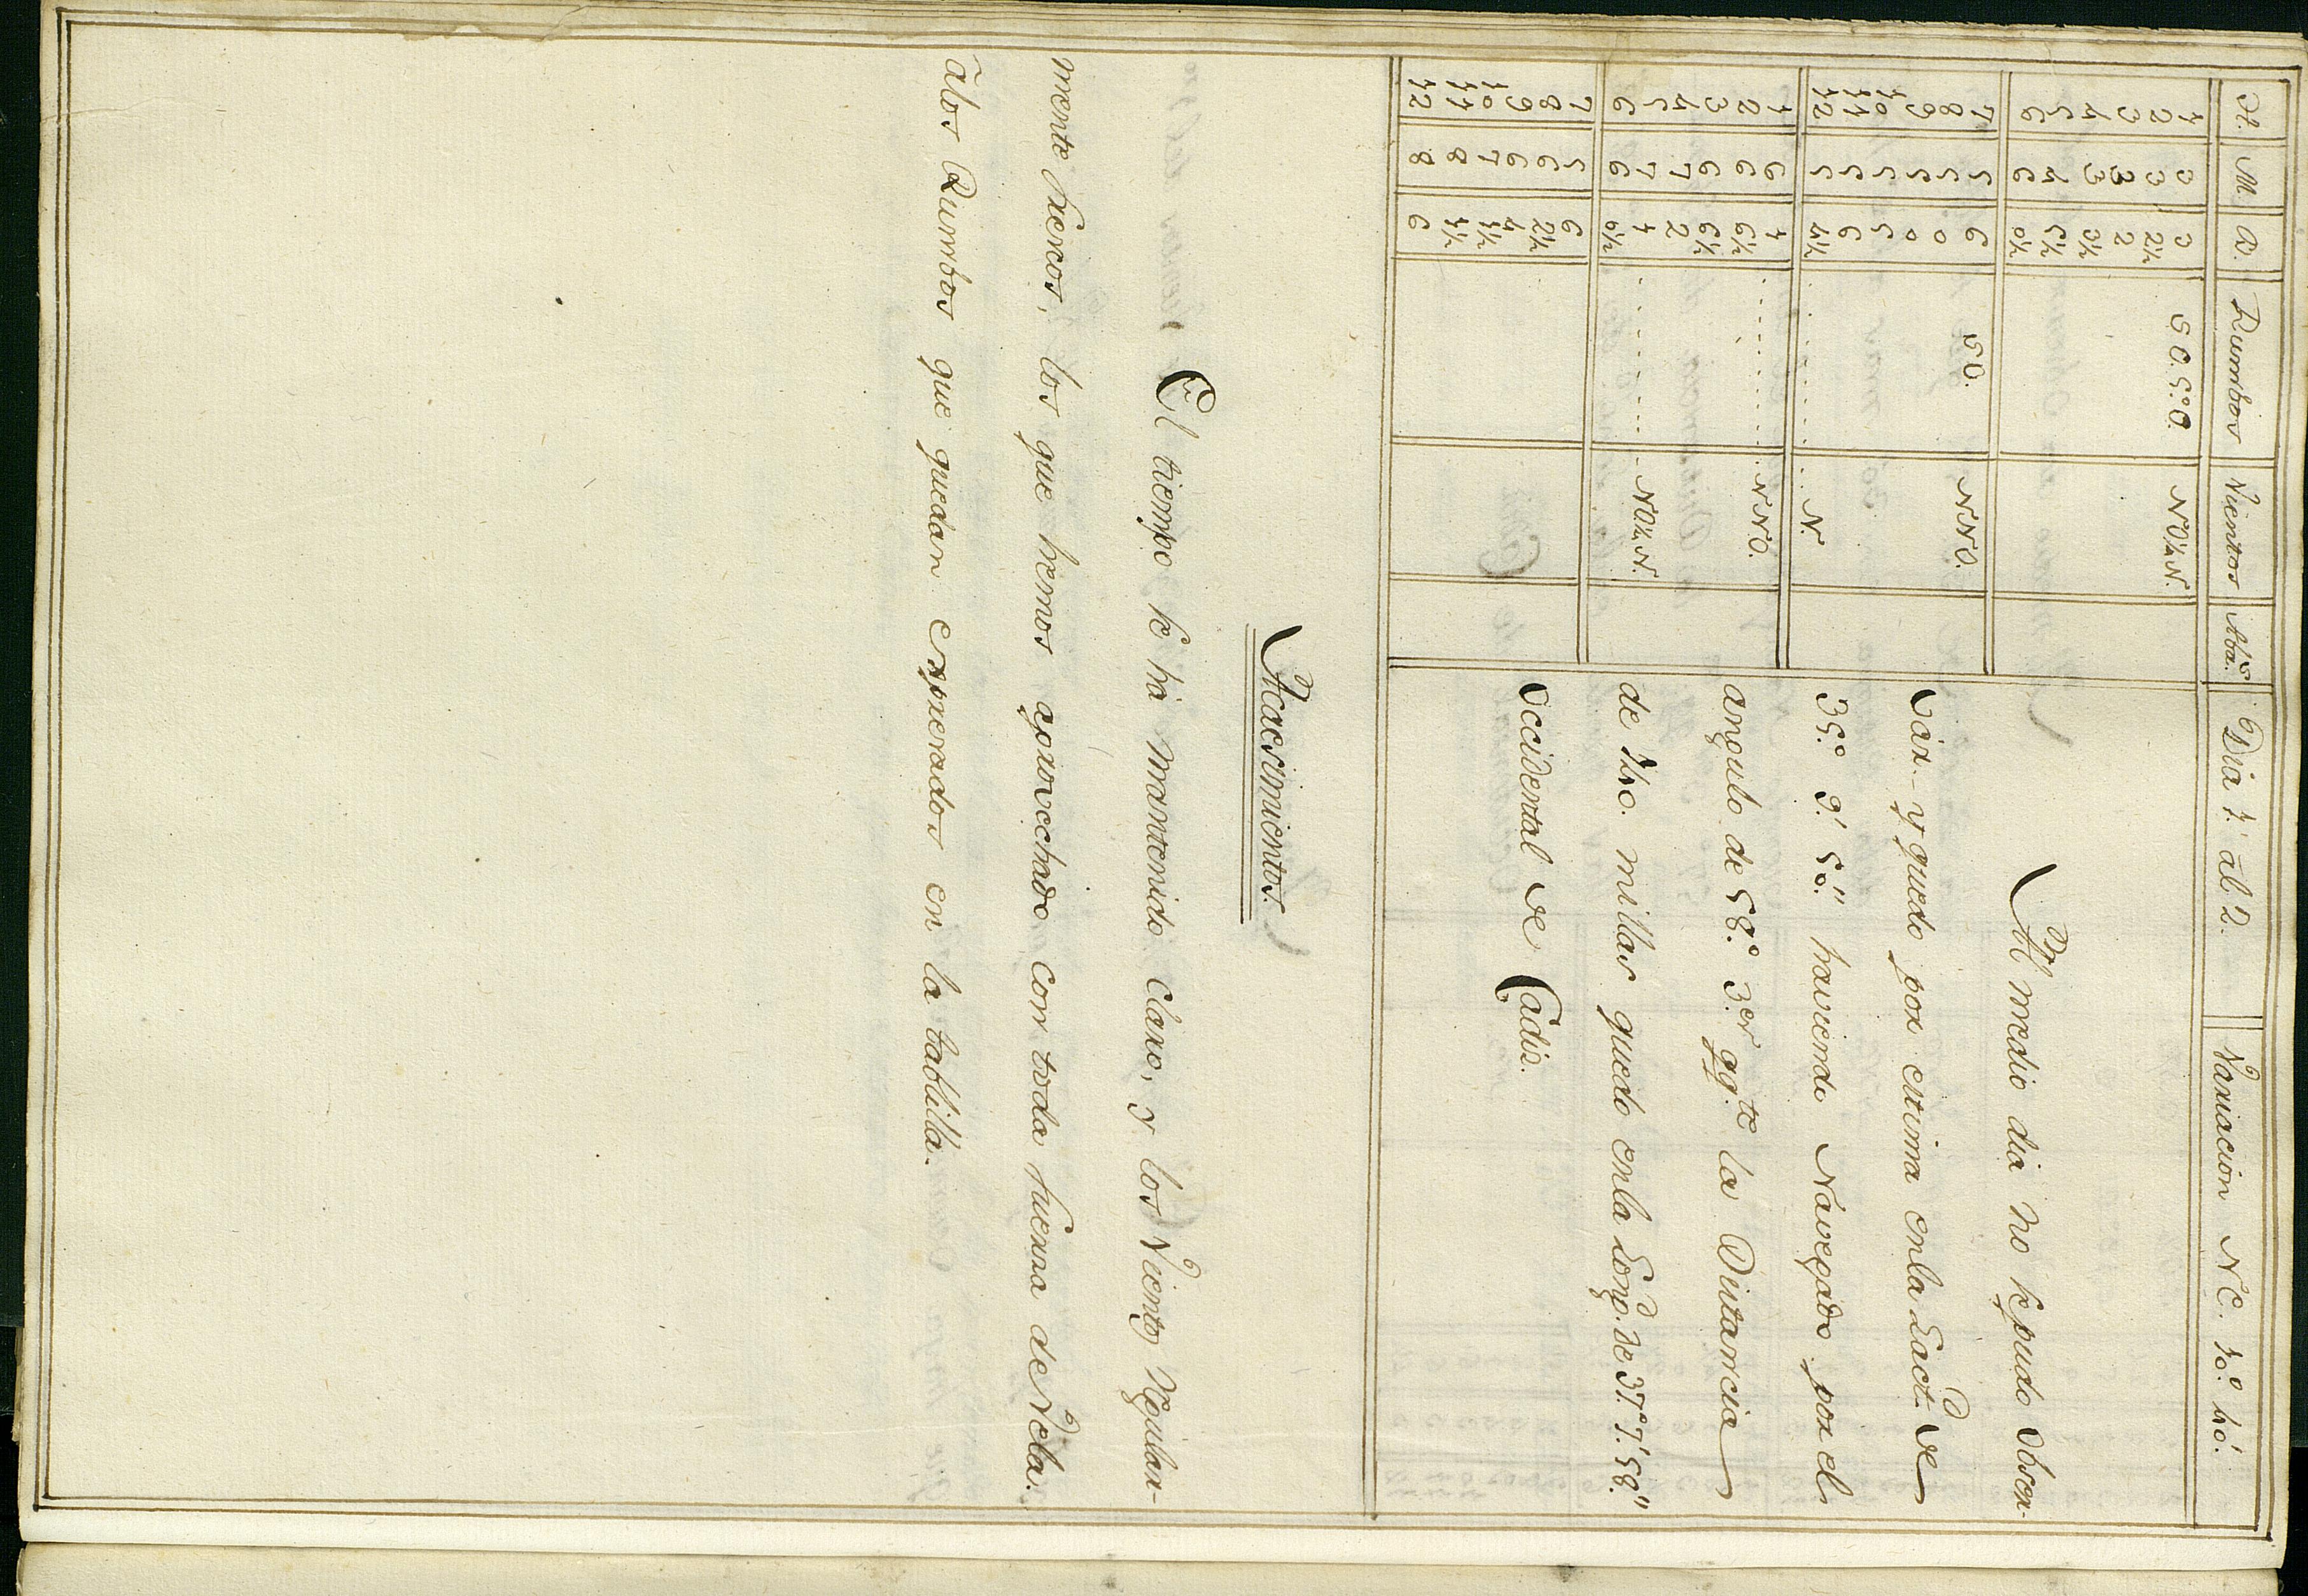 H. M. B. Rumbos Vientos Aba.s Dia 1. ál 2. Variacion NE. 10.° 40'.
1 3 3 SO.5.°O. NO¼N.
2 3 2½
3 3 2
4 3 3½
5 4 5½
6 6 0½
7 5 6 SO. NNO.
8 5 0
9 5 0
10 5 5
11 5 6
12 5 4½ ........ N.
1 6 1 ........ NNO.
2 6 6½
3 6 6½
4 7 2
5 7 1 ........ NO¼N.
6 6 6½
7 5 6
8 6 2½
9 6 4
10 7 1½
11 8 1½
12 8 6
Al medio dia no se pudo Obser-
var - y quedo por estima enla Lactd. de
35.° 9.' 50." haviendo Navegado por el
angulo de 58.° 3.er qq.te la Distancia
de 140. millas quedo enla Longd. de 37.° 7.' 58."
Occidental de Cadiz.
Acaecimientos.
El tiempo se há mantenido claro, y los Vientos Regular-
mente frescos, los que hemos aprovechado con toda fuerza de Vela.
álos Rumbos que quedan expresados en la tablilla.